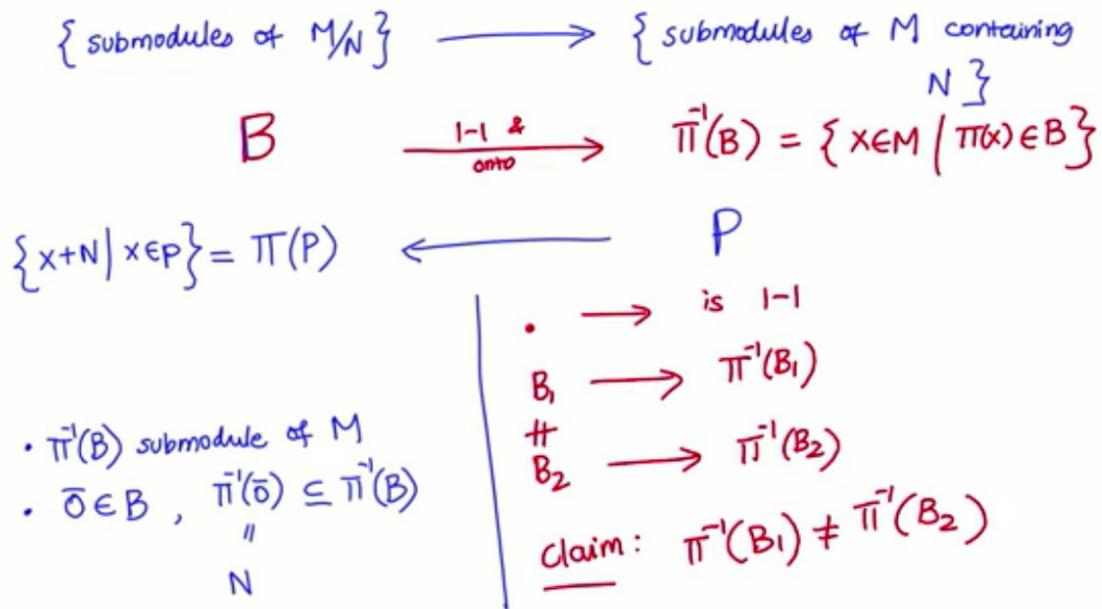 { submodules of M/N } ⟶ { submodules of M containing
N }
B 1-1 & onto ⟶ π⁻¹(B) = { x∈M / π(x) ∈ B }
{ x+N | x∈P } = π(P) ⟵ P
. ⟶ is 1-1
B₁ ⟶ π⁻¹(B₁)
≠
B₂ ⟶ π⁻¹(B₂)
Claim: π⁻¹(B₁) ≠ π⁻¹(B₂)
· π⁻¹(B) submodule of M
· 0̄ ∈ B , π⁻¹(0̄) ⊆ π⁻¹(B)
=
N